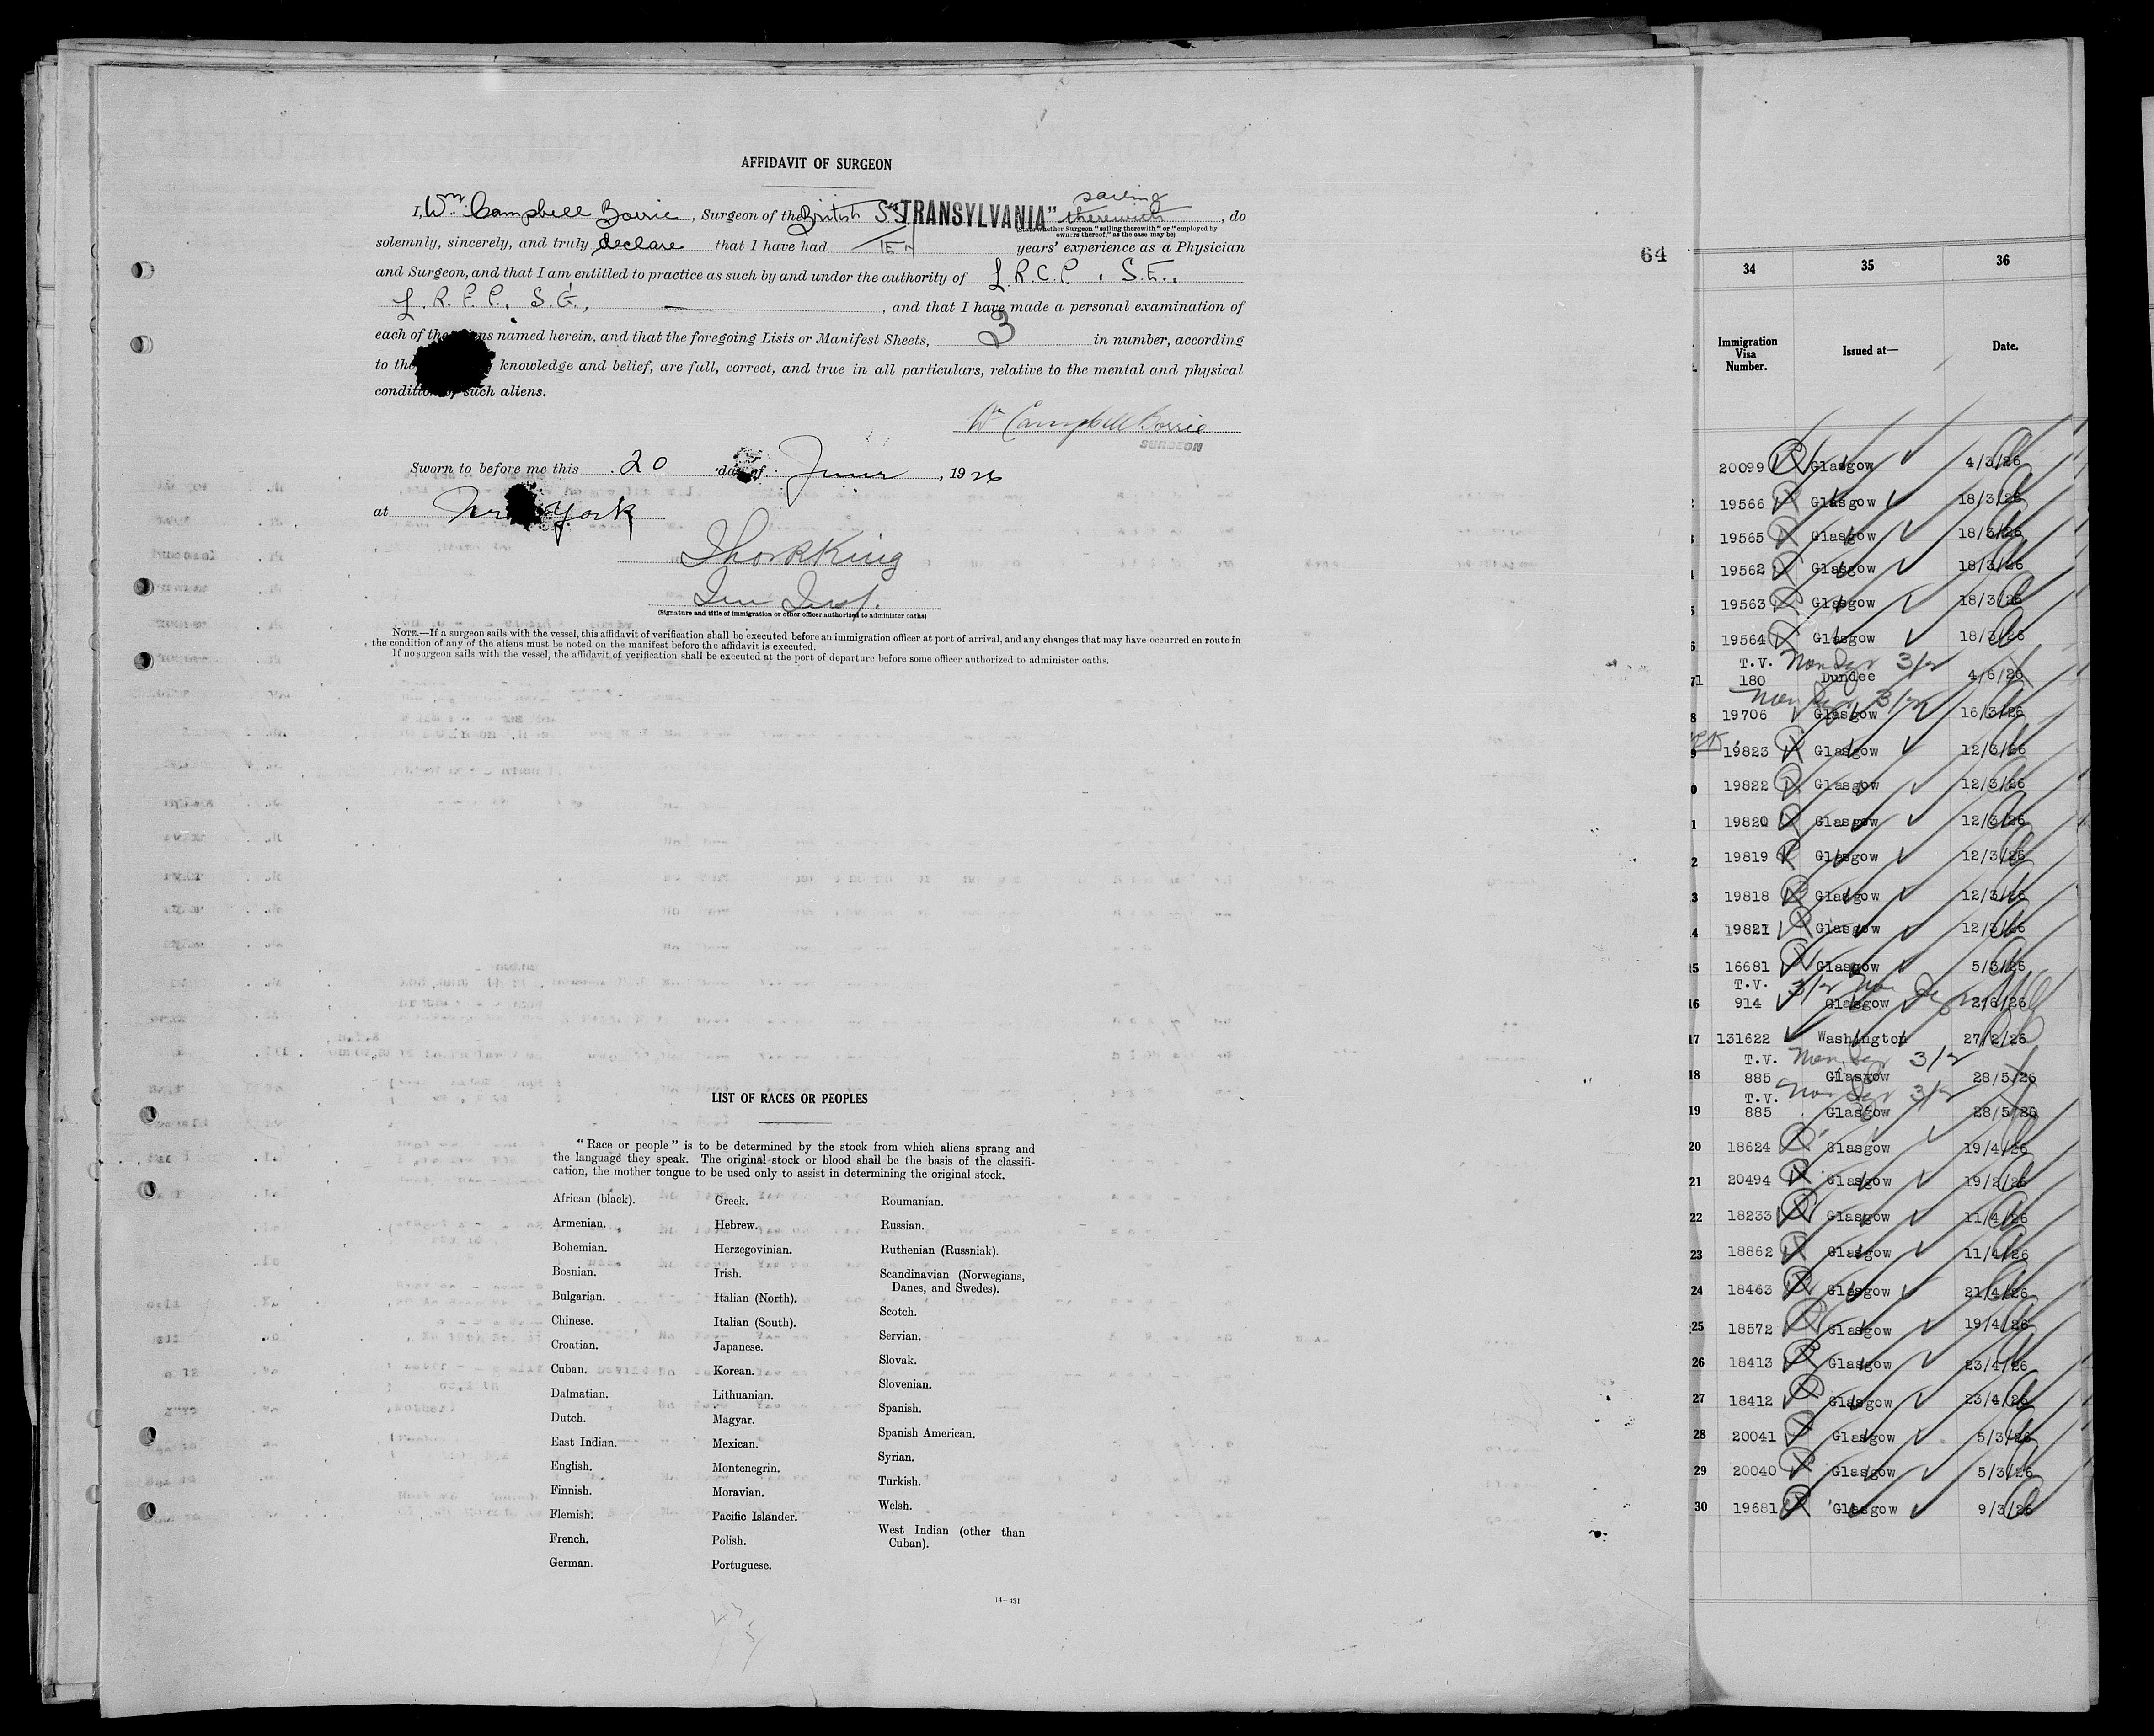 AFFIDAVIT OF SURGEON
sailing
I, Wm. Campbell Borrie, Surgeon of the British S.S. "TRANSYLVANIA" therewith, do
(State whether Surgeon "sailing therewith" or "employed by owners thereof," as the case may be)
solemnly, sincerely, and truly declare that I have had TEN years' experience as a Physician
and Surgeon, and that I am entitled to practice as such by and under the authority of L.R.C.P. S.E.,
L.R.F.P. S.G., — , and that I have made a personal examination of
each of the aliens named herein, and that the foregoing Lists or Manifest Sheets, 3 in number, according
to the knowledge and belief, are full, correct, and true in all particulars, relative to the mental and physical
condition of such aliens.
Wm Campbell Borrie
SURGEON
Sworn to before me this 20 day of June, 1926
at New York
Thor R King
Imm Insp.
(Signature and title of immigration or other officer authorized to administer oaths)
NOTE.—If a surgeon sails with the vessel, this affidavit of verification shall be executed before an immigration officer at port of arrival, and any changes that may have occurred en route in
the condition of any of the aliens must be noted on the manifest before the affidavit is executed.
If no surgeon sails with the vessel, the affidavit of verification shall be executed at the port of departure before some officer authorized to administer oaths.
LIST OF RACES OR PEOPLES
"Race or people" is to be determined by the stock from which aliens sprang and
the language they speak. The original stock or blood shall be the basis of the classifi-
cation, the mother tongue to be used only to assist in determining the original stock.
African (black).
Armenian.
Bohemian.
Bosnian.
Bulgarian.
Chinese.
Croatian.
Cuban.
Dalmatian.
Dutch.
East Indian.
English.
Finnish.
Flemish.
French.
German.
Greek.
Hebrew.
Herzegovinian.
Irish.
Italian (North).
Italian (South).
Japanese.
Korean.
Lithuanian.
Magyar.
Mexican.
Montenegrin.
Moravian.
Pacific Islander.
Polish.
Portuguese.
Roumanian.
Russian.
Ruthenian (Russniak).
Scandinavian (Norwegians,
Danes, and Swedes).
Scotch.
Servian.
Slovak.
Slovenian.
Spanish.
Spanish American.
Syrian.
Turkish.
Welsh.
West Indian (other than
Cuban).
14—431
64
34 35 36
Immigration Visa Number. Issued at— Date.
20099 Glasgow 4/3/26
19566 Glasgow 18/3/26
19565 Glasgow 18/3/26
19562 Glasgow 18/3/26
19563 Glasgow 18/3/26
19564 Glasgow 18/3/26
T.V. 3/2
180 Dundee 4/6/26
3/2
8 19706 Glasgow 16/3/26
9 19823 Glasgow 12/3/26
0 19822 Glasgow 12/3/26
1 19820 Glasgow 12/3/26
2 19819 Glasgow 12/3/26
3 19818 Glasgow 12/3/26
4 19821 Glasgow 12/3/26
15 16681 Glasgow 5/3/26
T.V. 3/2
16 914 Glasgow 2/6/26
17 131622 Washington 27/2/26
T.V. 3/2
18 885 Glasgow 28/5/26
T.V. 3/2
19 885 Glasgow 28/5/26
20 18624 Glasgow 19/4/26
21 20494 Glasgow 19/2/26
22 18233 Glasgow 11/4/26
23 18862 Glasgow 11/4/26
24 18463 Glasgow 21/4/26
25 18572 Glasgow 19/4/26
26 18413 Glasgow 23/4/26
27 18412 Glasgow 23/4/26
28 20041 Glasgow 5/3/26
29 20040 Glasgow 5/3/26
30 19681 Glasgow 9/3/26